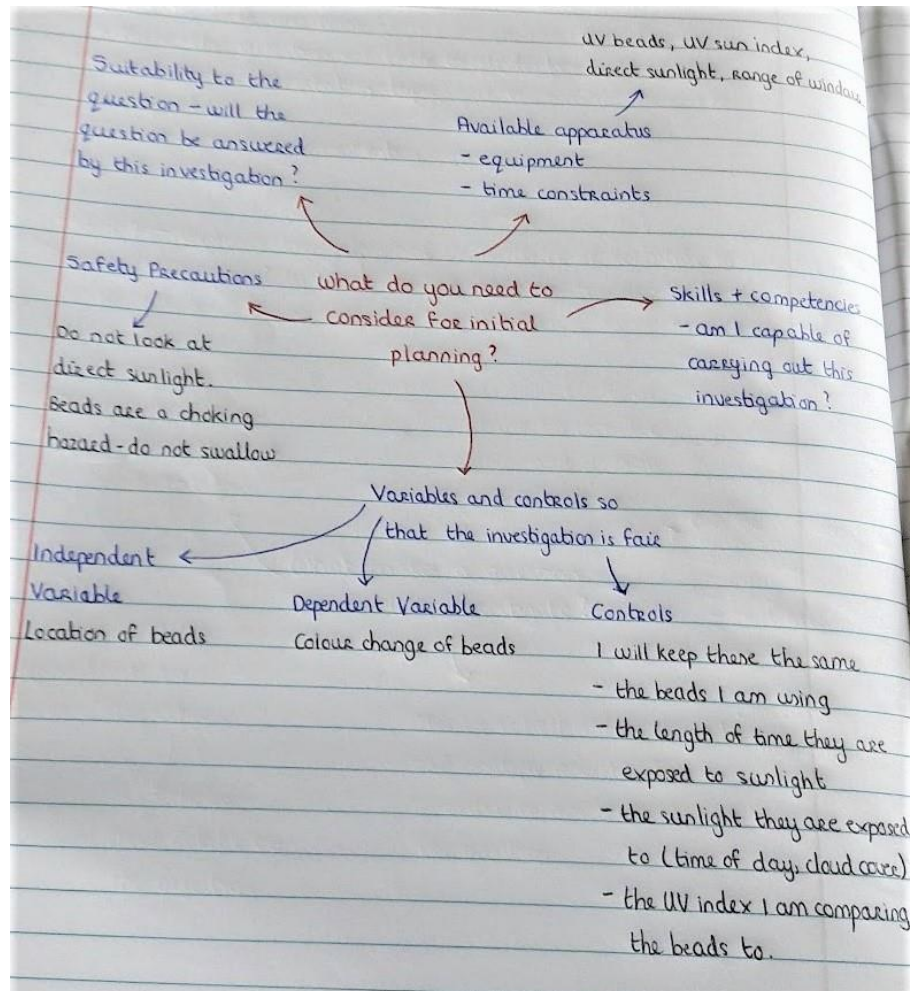 uv beads, uv sun index,
direct sunlight, range of window
Suitability to the
question – will the
question be answered
by this investigation?
Available apparatus
- equipment
- time constraints
Safety Precautions
Do not look at
direct sunlight.
Beads are a choking
hazard – do not swallow
What do you need to
consider for initial
planning?
Skills + competencies
- am I capable of
carrying out this
investigation?
Variables and controls so
that the investigation is fair
Independent
Variable
Location of beads
Dependent Variable
Colour change of beads
Controls
I will keep these the same
- the beads I am using
- the length of time they are
exposed to sunlight
- the sunlight they are exposed
to (time of day, cloud cover)
- the UV index I am comparing
the beads to.